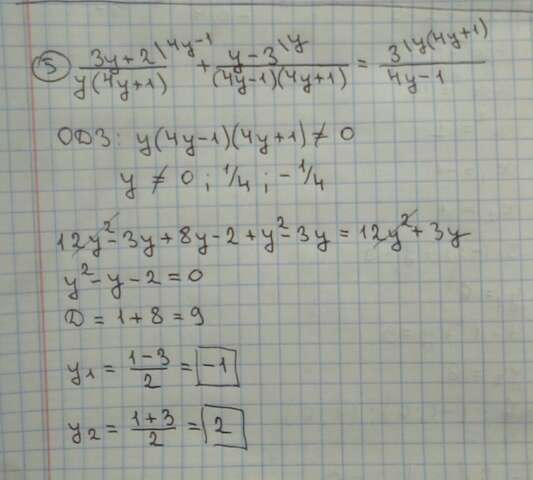 5 (3y+2\4y-1)/(y(4y+1)) + (y-3\y)/((4y-1)(4y+1)) = (3\y(4y+1))/(4y-1)
ОДЗ: y(4y-1)(4y+1) ≠ 0
y ≠ 0; 1/4; -1/4
12y² - 3y + 8y - 2 + y² - 3y = 12y² + 3y
y² - y - 2 = 0
D = 1 + 8 = 9
y₁ = (1-3)/2 = -1
y₂ = (1+3)/2 = 2